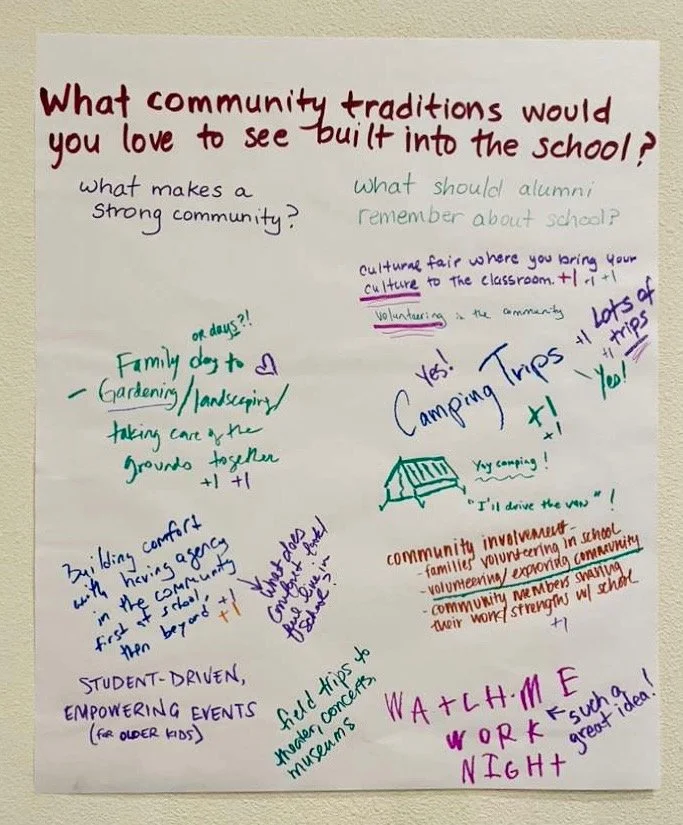 What community traditions would
you love to see built into the school?
what makes a
strong community?
what should alumni
remember about school?
cultural fair where you bring your
culture to the classroom. +1 +1 +1
volunteering in the community
Lots of
trips
+1
+1
Yes!
Yes!
Camping Trips
+1
+1
Yay camping!
"I'll drive the van"!
or days?!
Family day to
- Gardening/landscaping/
taking care of the
grounds together
+1 +1
Building comfort
with having agency
in the community
first at school,
then beyond +1
+1
what does
comfort look/
feel like in
school?
community involvement-
- families volunteering in school
- volunteering/exploring community
- community members sharing
their work/strengths w/ school
+1
STUDENT-DRIVEN,
EMPOWERING EVENTS
(for OLDER KIDS)
field trips to
theater, concerts,
museums
WAtCH-ME
WORK
NIGHt
such a
great idea!